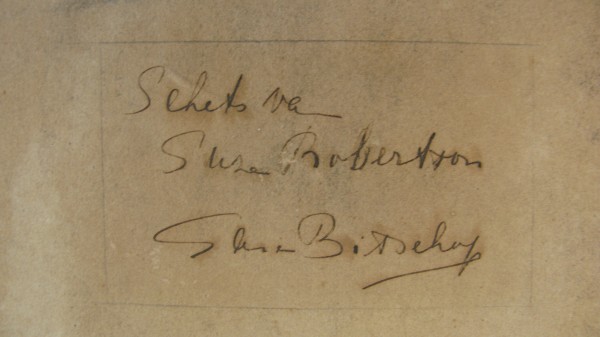 Schets van
Suze Robertson
Sara Bisschop